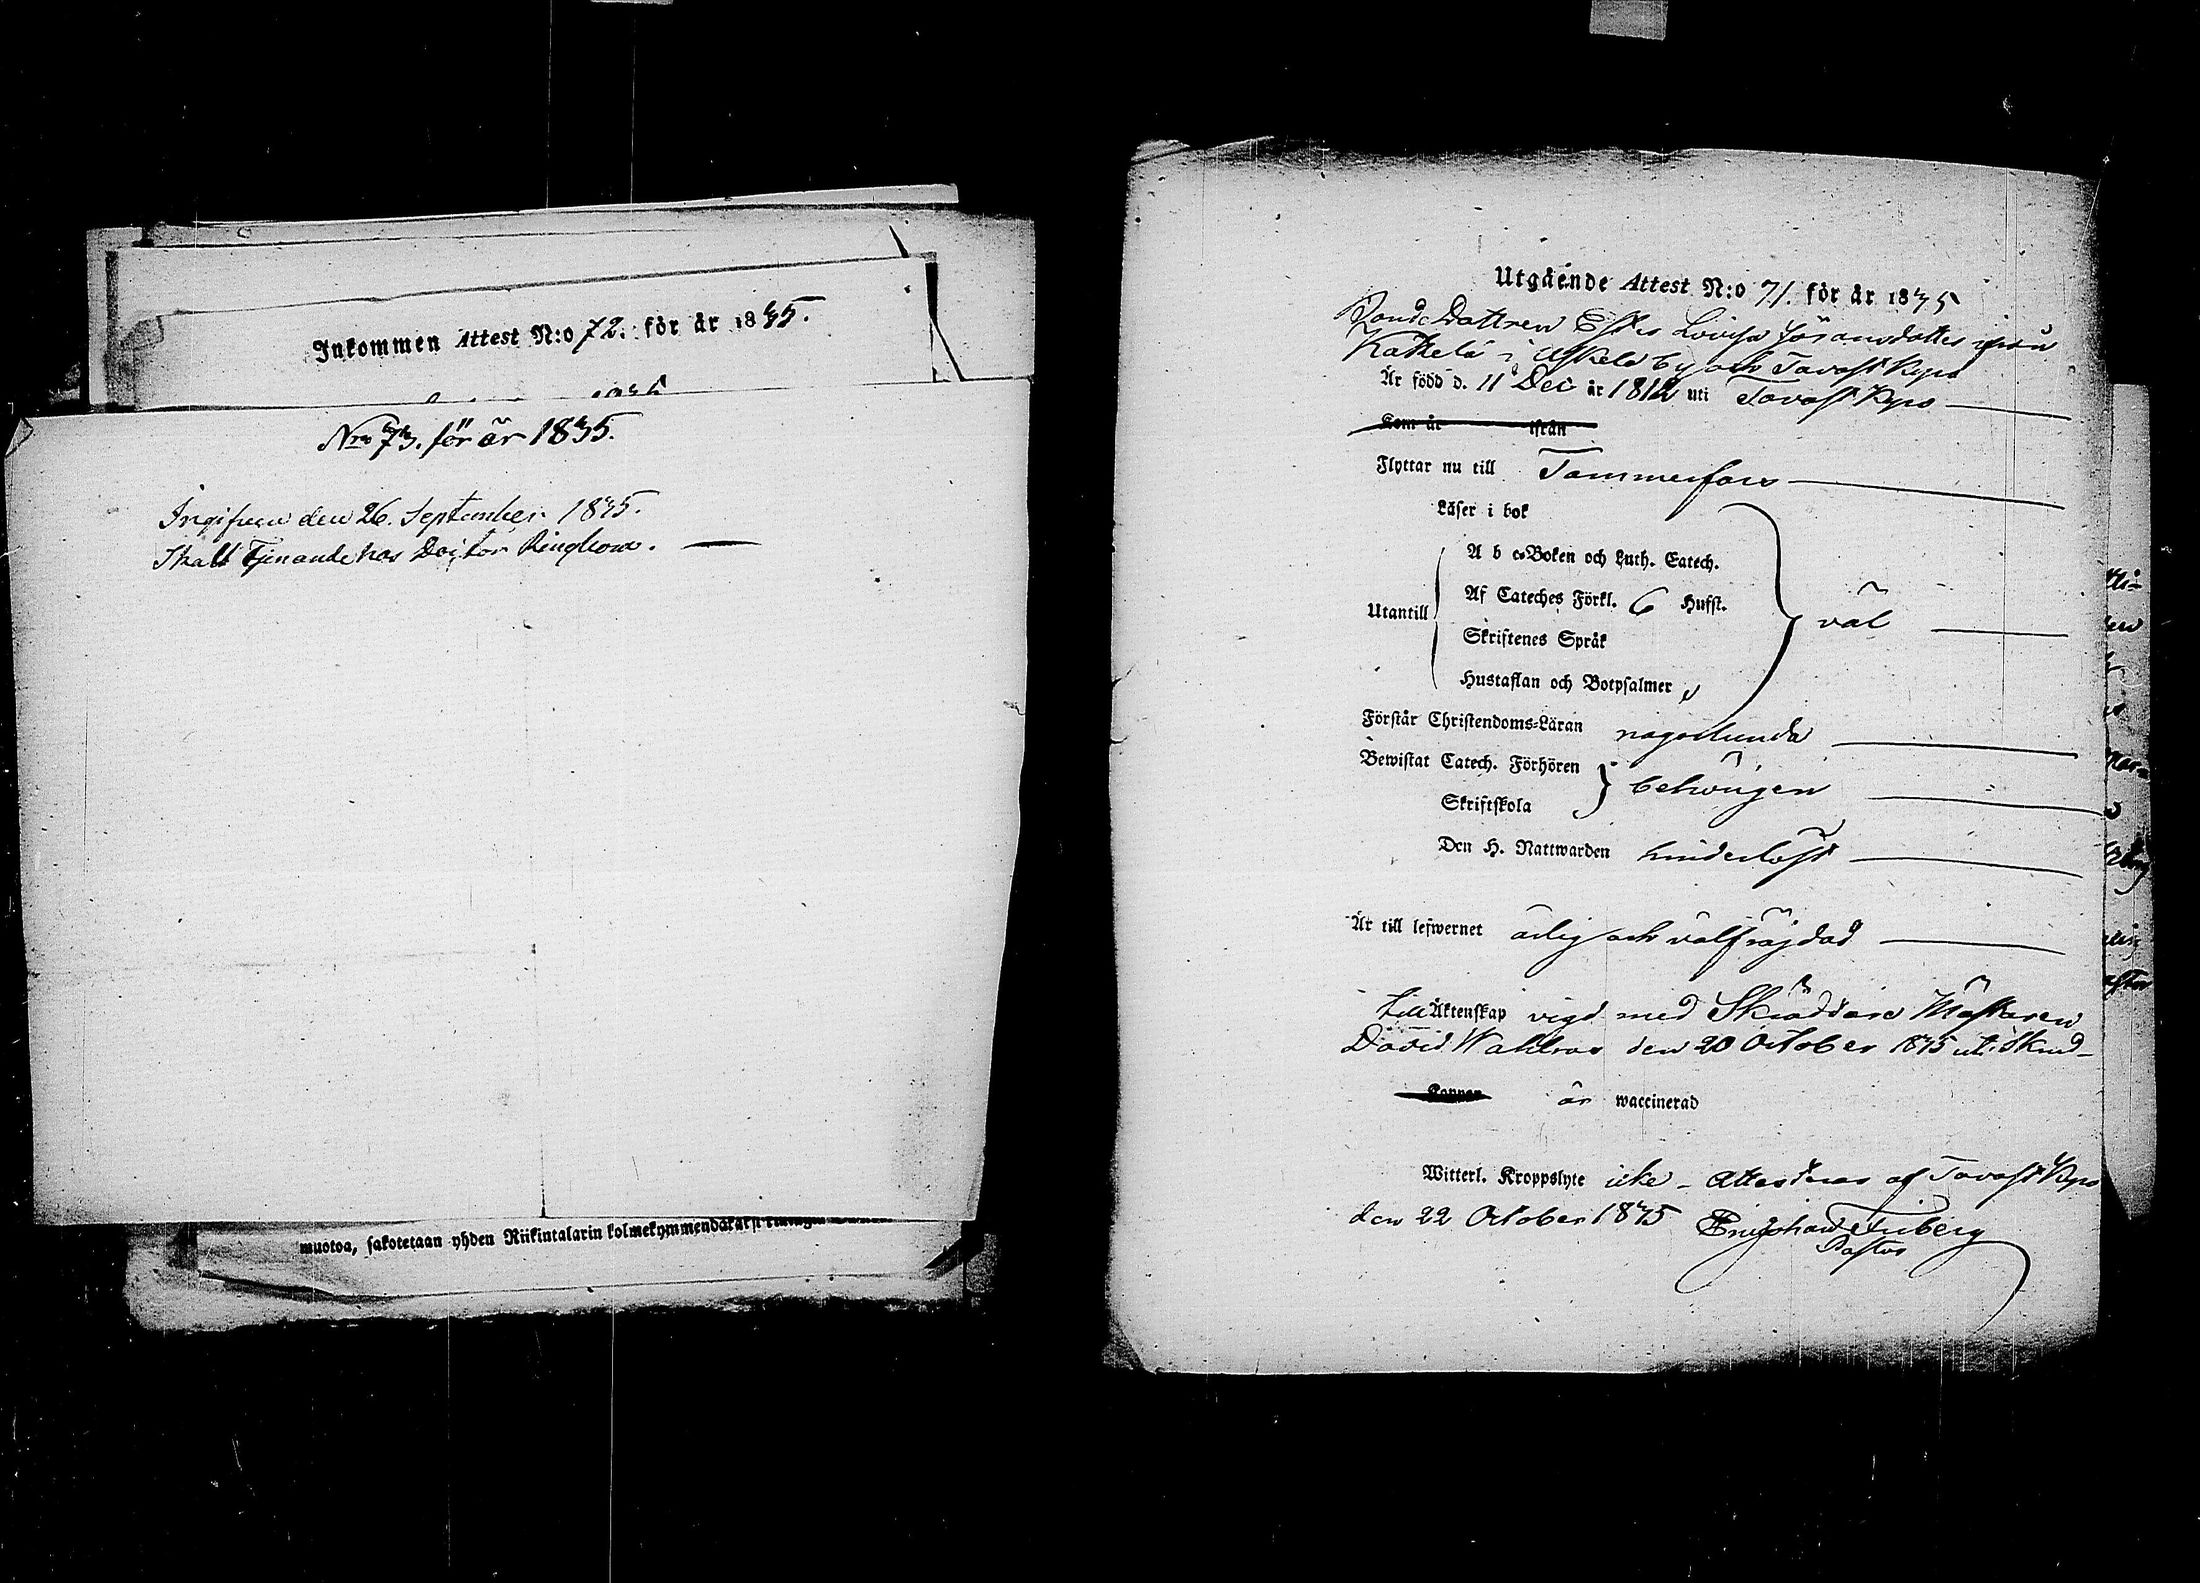 Inkommen Attest N:o 72. för år 1845.
No 73. för år 1845.
Ingifven den 26. September 1845.
Skall Tjenande hos Doctor Ringbom.
muotoa, sakotetaan yhden Riikintalarin kolmekymmendäkaksi
Utgående Attest N:o 71. för år 1845
Bonde Dottren Lovisa Göransdotter ifrån
Kattelä i by och Tavast Kyro
Är född d. 11 Dec år 1812 uti Tavast Kyro
Kom år ifrån
Flyttar nu till Tammerfors
Läser i bok
A b c-Boken och Luth. Catech.
Utantill Af Cateches Förkl. 6 Hufst. väl
Skriftenes Språk
Hustaflan och Botpsalmer
Förstår Christendoms-Läran någorlunda
Bewistat Catech. Förhören behörigen
Skriftskola
Den H. Nattwarden hinderlöst
Är till lefwernet ärlig och välfräjdad
till Äktenskap vigd med Skräddare Mästaren
David Wahlroos den 20 October 1845
Koppor är waccinerad
Witterl. Kroppslyte icke - Attesteras af Tavast Kyro
den 22 October 1845
Pastor